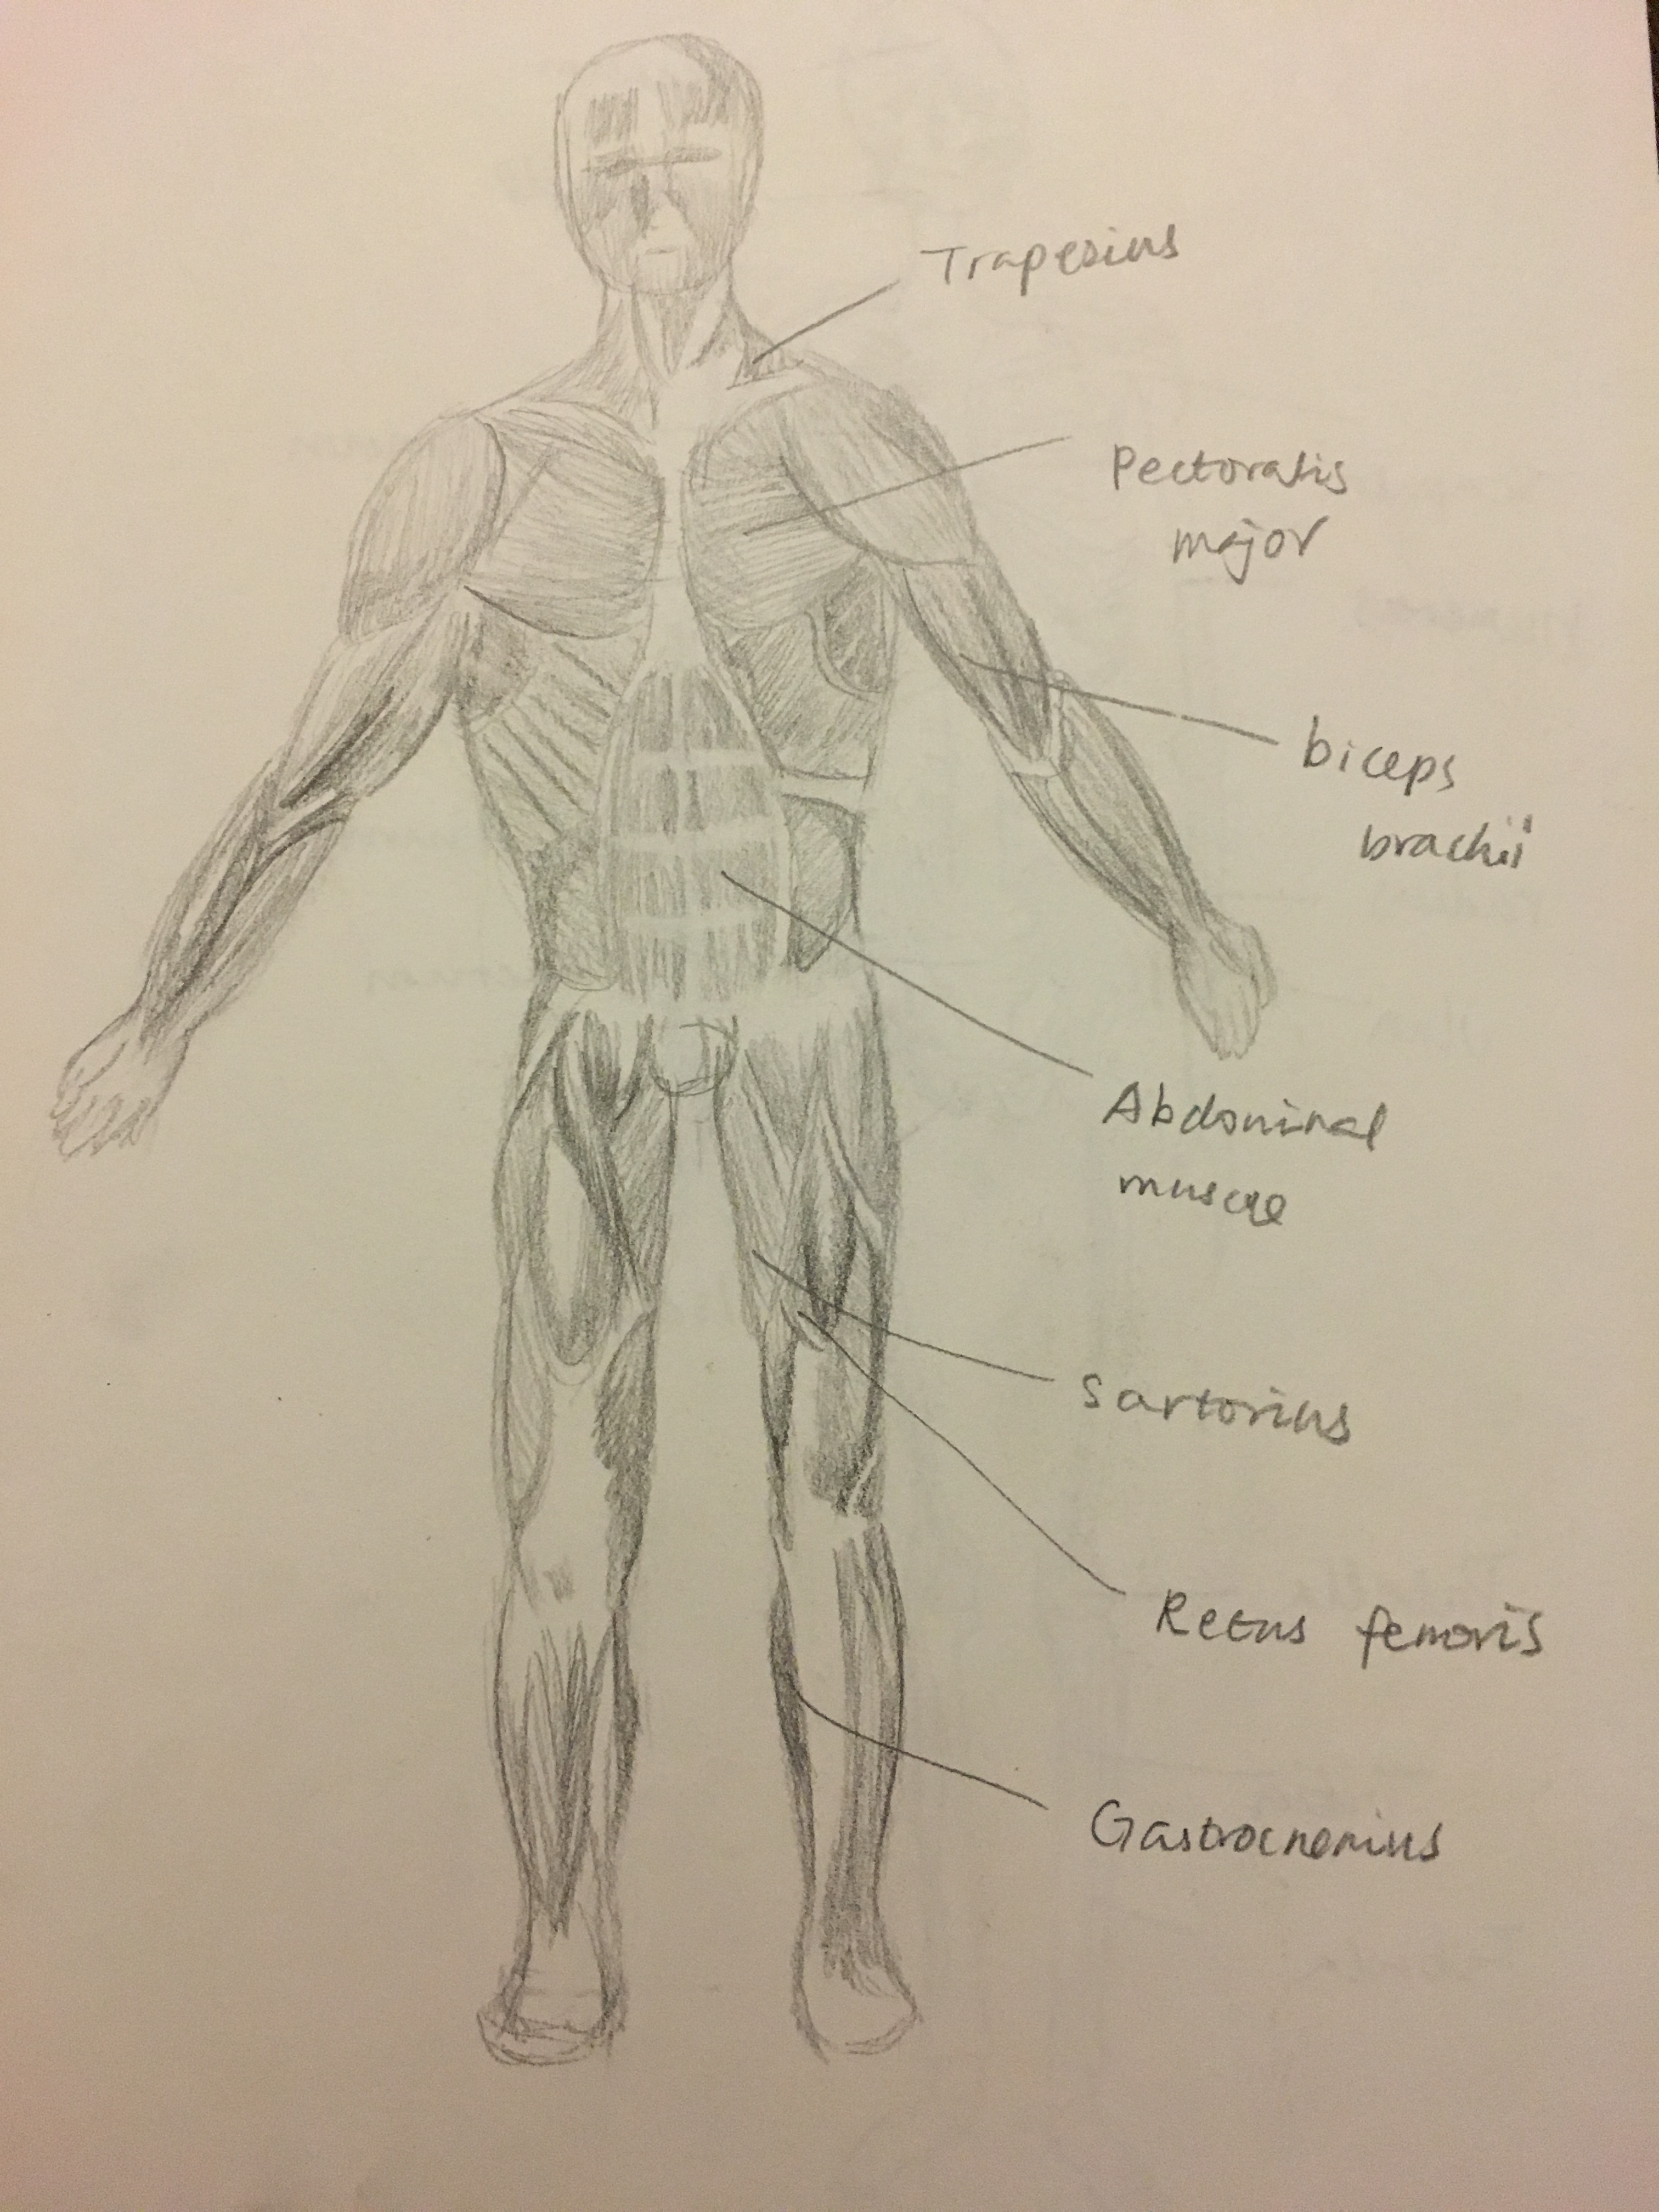 Trapesius
Pectoralis
major
biceps
brachii
Abdominal
muscle
Sartorius
Retus femoris
Gastrocnemius